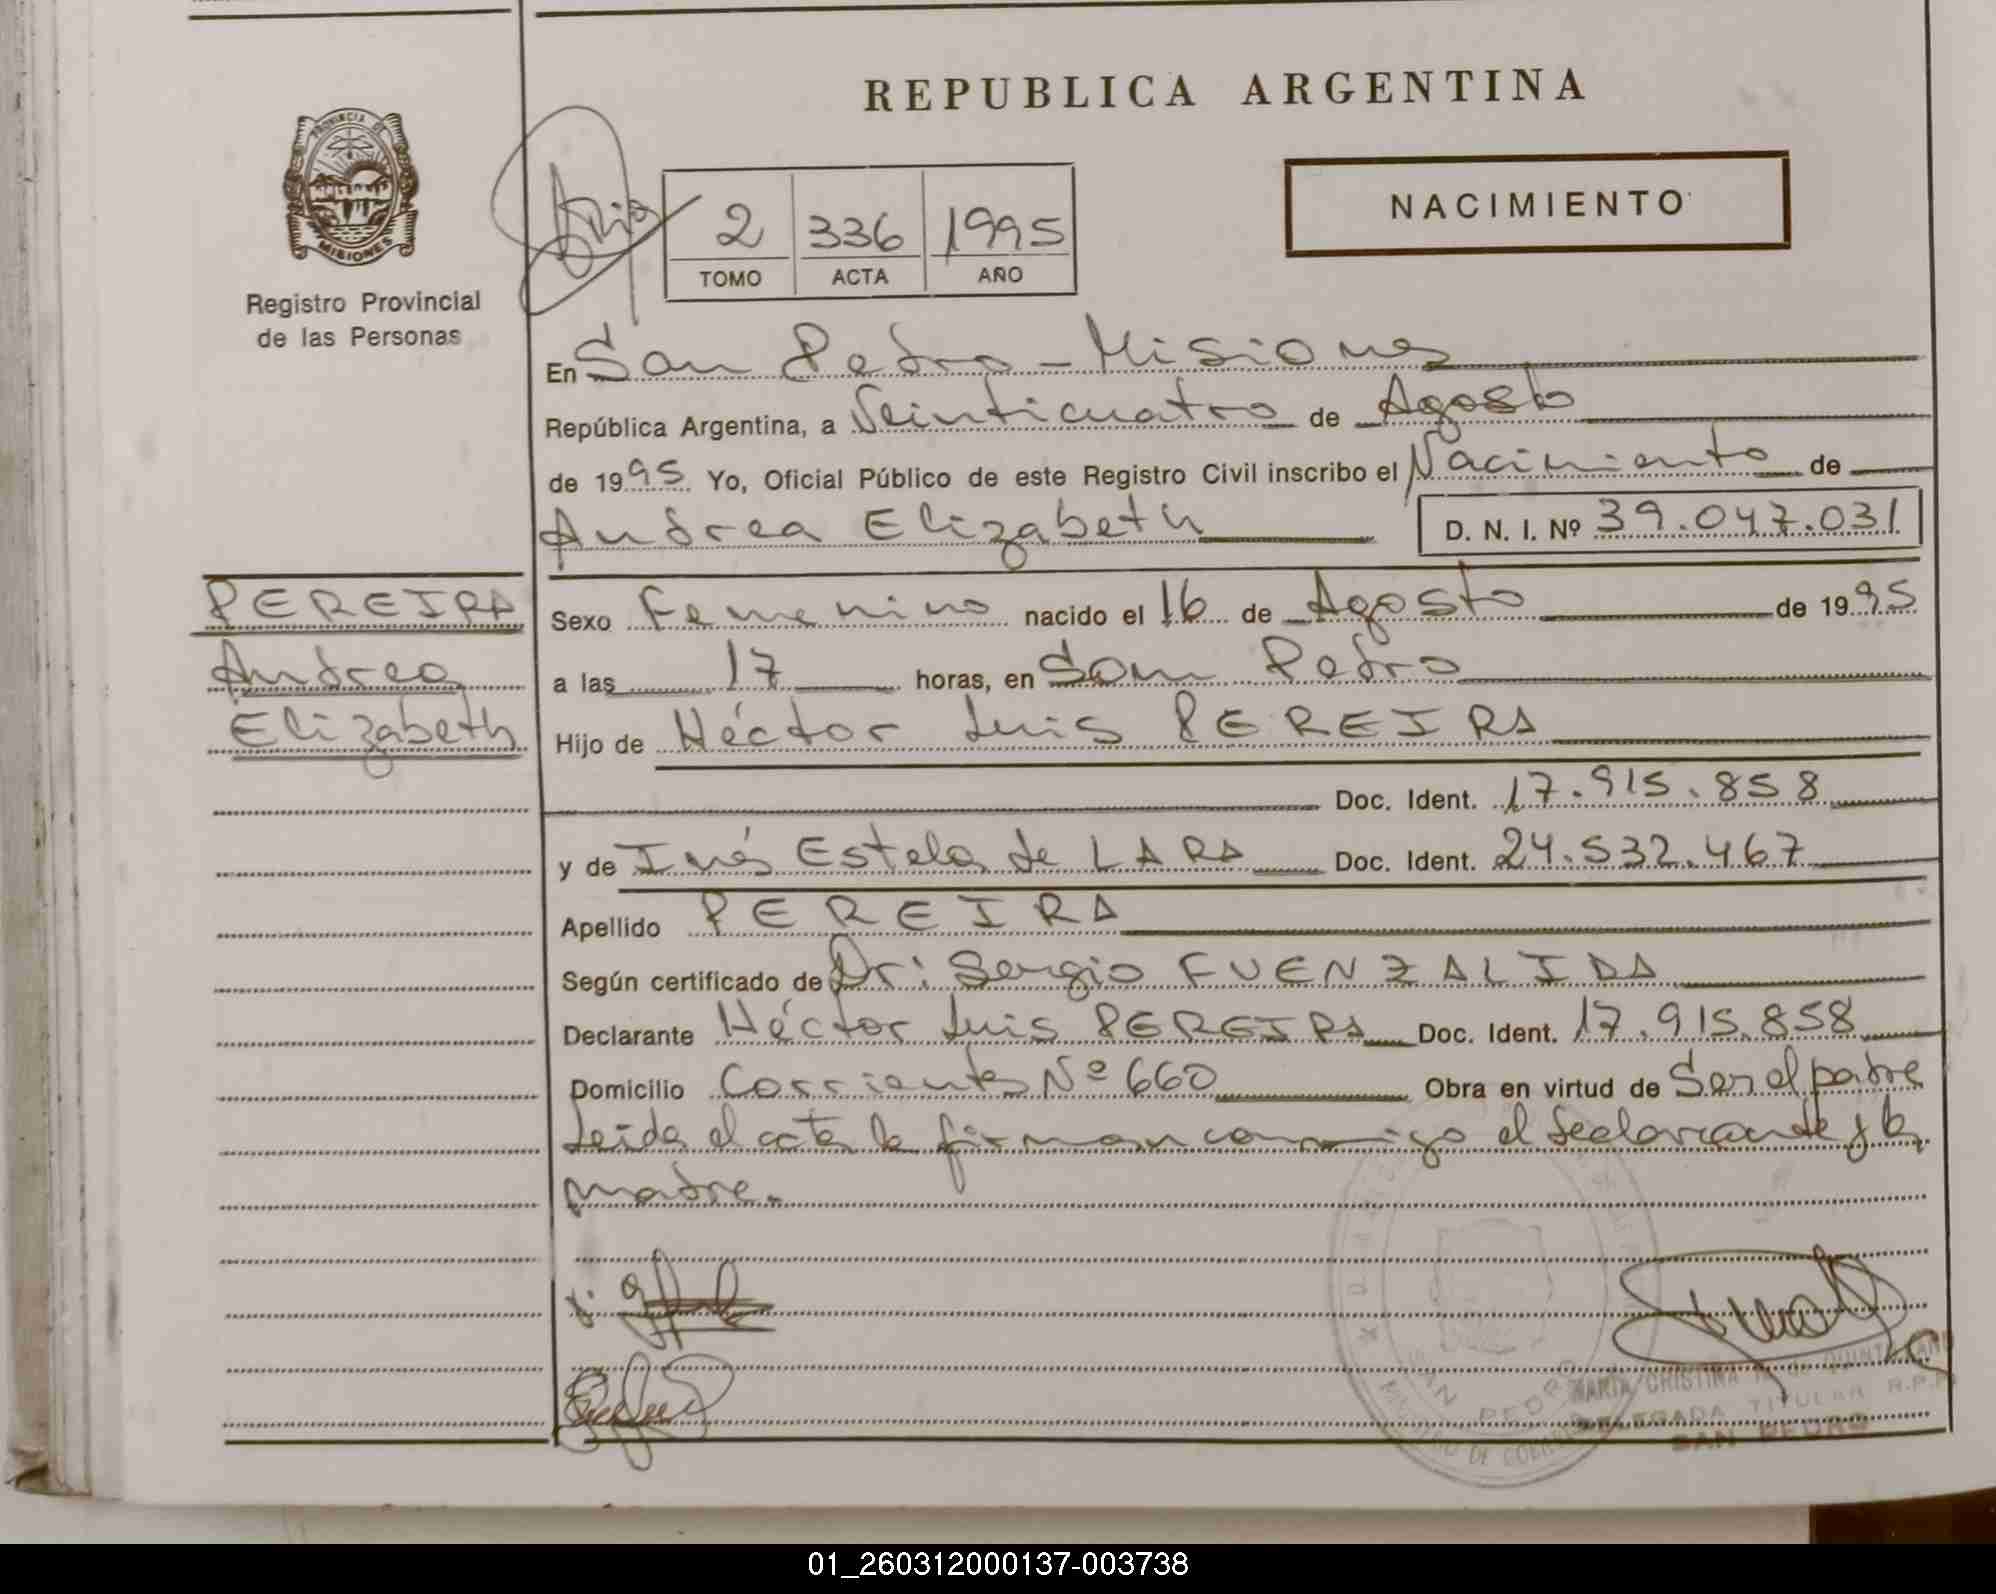 REPUBLICA ARGENTINA
PROVINCIA DE
MISIONES
Registro Provincial
de las Personas
NACIMIENTO
2 336 1995
TOMO ACTA AÑO
En San Pedro - Misiones
República Argentina, a Veinticuatro de Agosto
de 1995 Yo, Oficial Público de este Registro Civil inscribo el Nacimiento de
Andrea Elizabeth D. N. I. Nº 39.047.031
PEREIRA
Andrea
Elizabeth
Sexo Femenino nacido el 16 de Agosto de 1995
a las 17 horas, en San Pedro
Hijo de Héctor Luis PEREIRA
Doc. Ident. 17.915.858
y de Inés Estela de LARA Doc. Ident. 24.532.467
Apellido PEREIRA
Según certificado de Dr: Sergio FUENZALIDA
Declarante Héctor Luis PEREIRA Doc. Ident. 17.915.858
Domicilio Corrientes Nº 660 Obra en virtud de Ser el padre
Leida el acta la firman conmigo el declarante y la
madre.
SAN PEDRO
MARIA CRISTINA de QUINTANA
DELEGADA TITULAR R.P.P.
SAN PEDRO
01_260312000137-003738